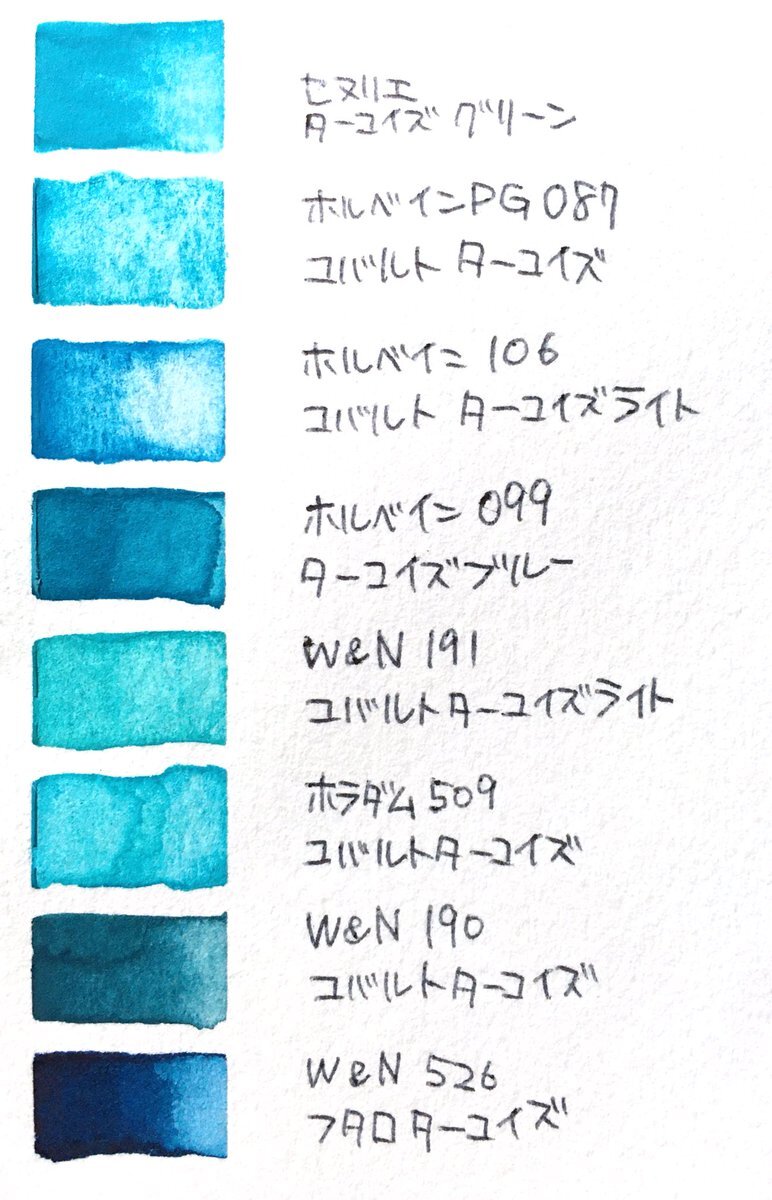 セヌリエ
ターコイズ グリーン
ホルベインPG 087
コバルト ターコイズ
ホルベイン 106
コバルト ターコイズライト
ホルベイン 099
ターコイズブルー
W&N 191
コバルトターコイズライト
ホラダム 509
コバルトターコイズ
W&N 190
コバルトターコイズ
W&N 526
フタロターコイズ